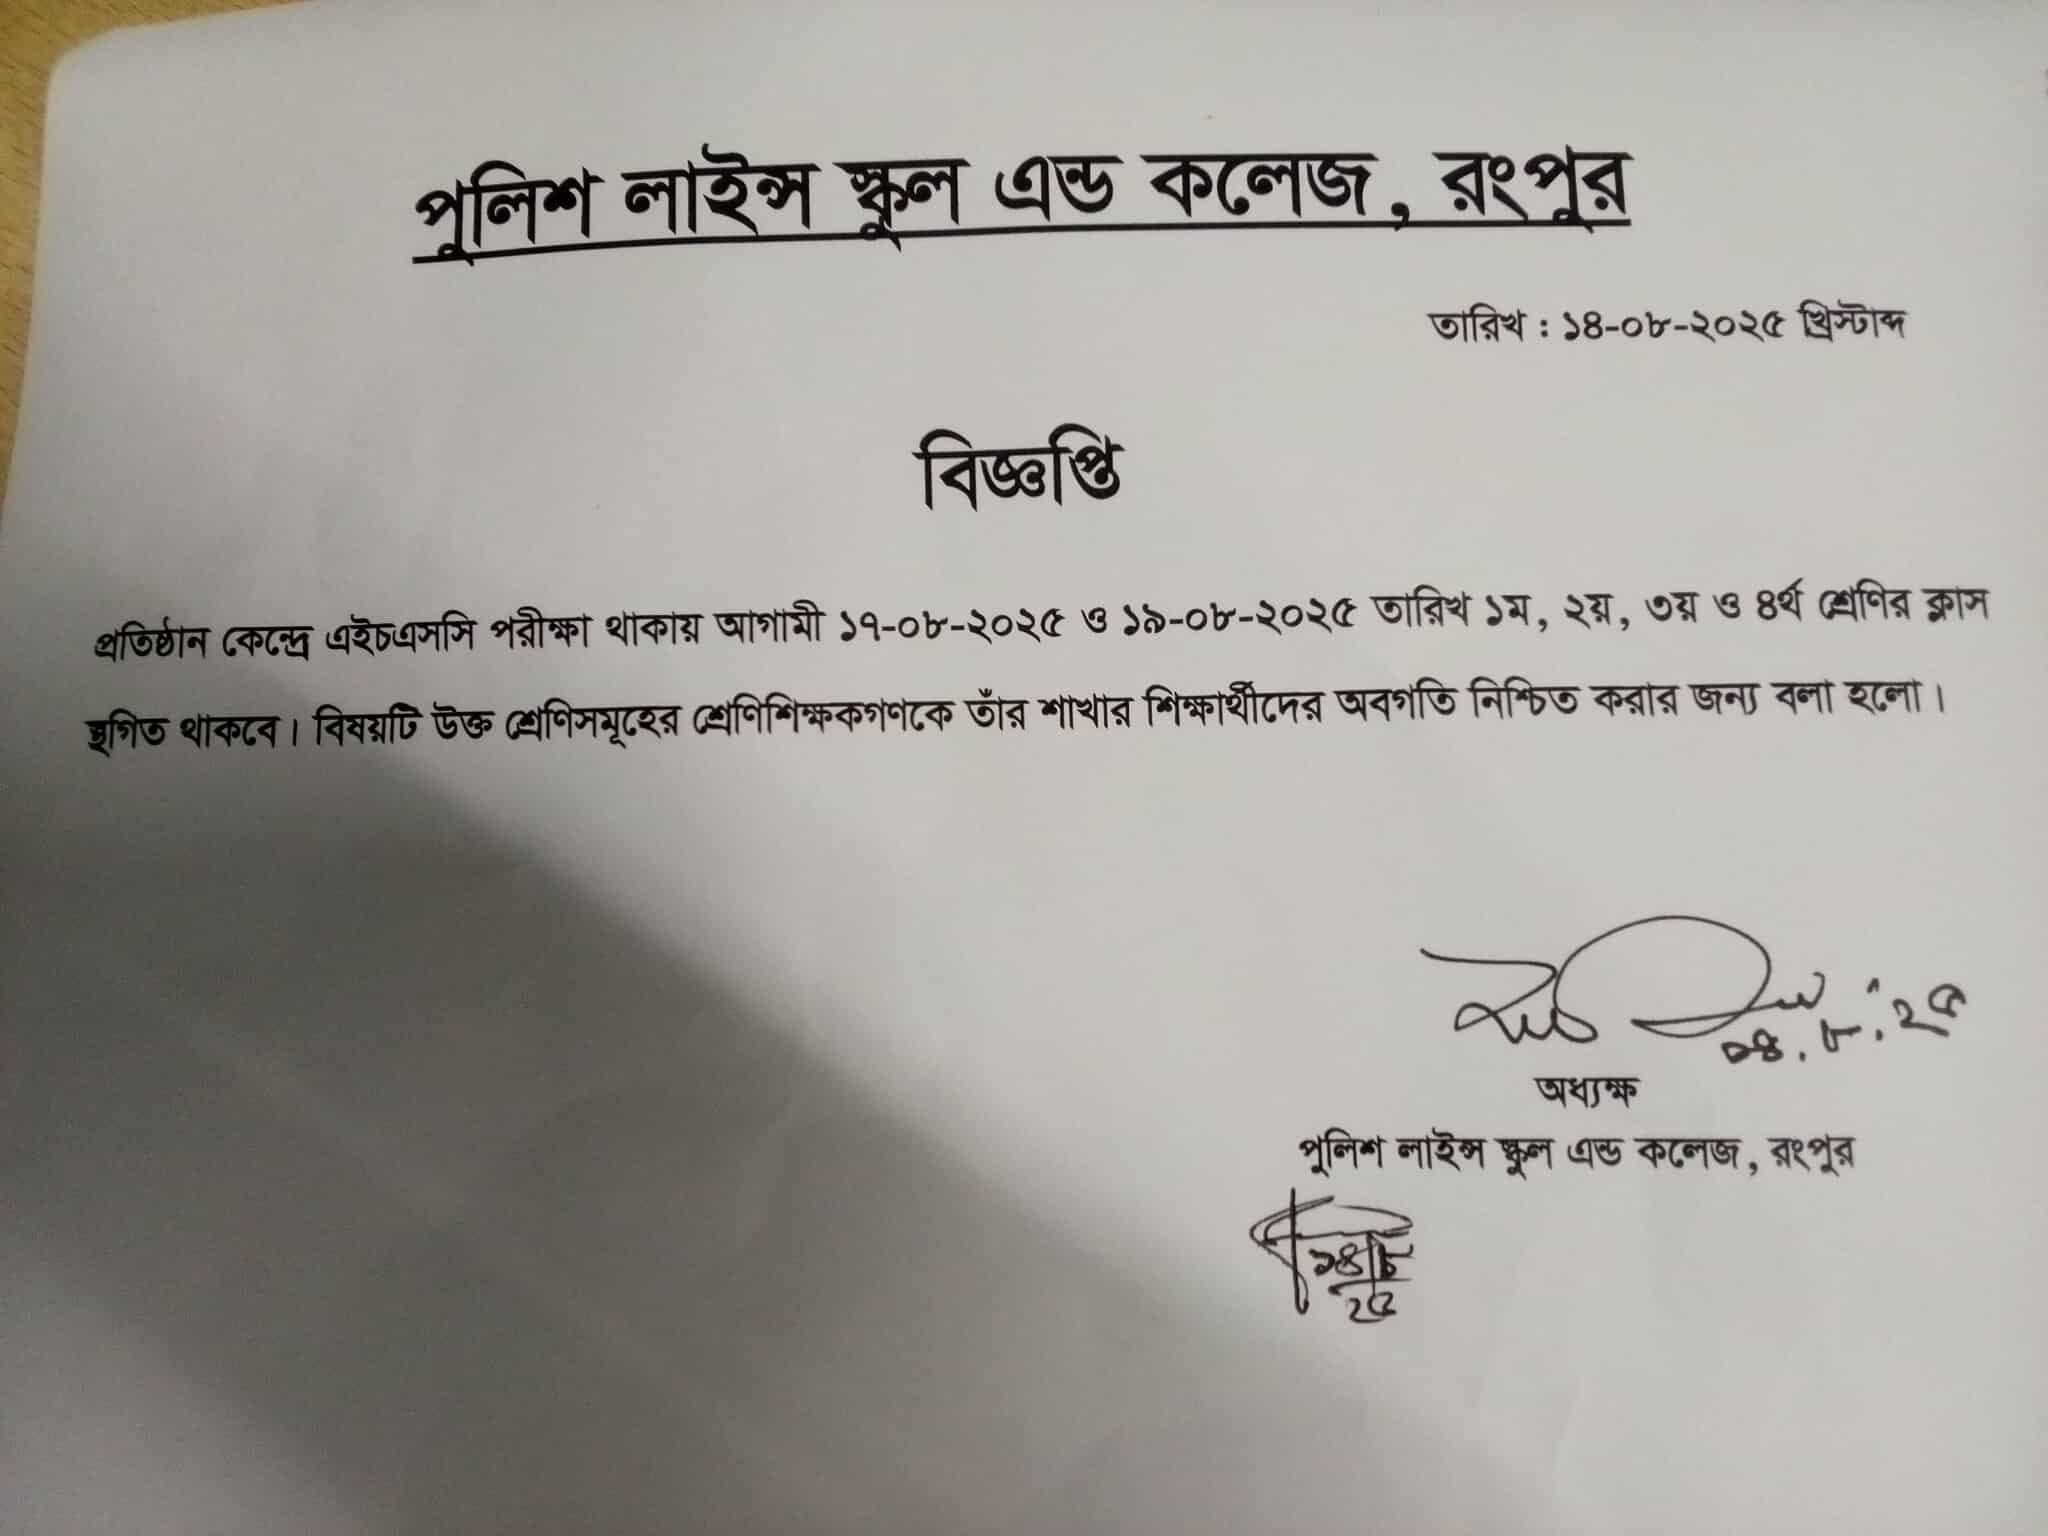 পুলিশ লাইন্স স্কুল এন্ড কলেজ, রংপুর
তারিখ : ১৪-০৮-২০২৫ খ্রিস্টাব্দ
বিজ্ঞপ্তি
প্রতিষ্ঠান কেন্দ্রে এইচএসসি পরীক্ষা থাকায় আগামী ১৭-০৮-২০২৫ ও ১৯-০৮-২০২৫ তারিখ ১ম, ২য়, ৩য় ও ৪র্থ শ্রেণির ক্লাস
স্থগিত থাকবে। বিষয়টি উক্ত শ্রেণিসমূহের শ্রেণিশিক্ষকগণকে তাঁর শাখার শিক্ষার্থীদের অবগতি নিশ্চিত করার জন্য বলা হলো।
১৪.৮.২৫
অধ্যক্ষ
পুলিশ লাইন্স স্কুল এন্ড কলেজ, রংপুর
১৪/৮
২৫